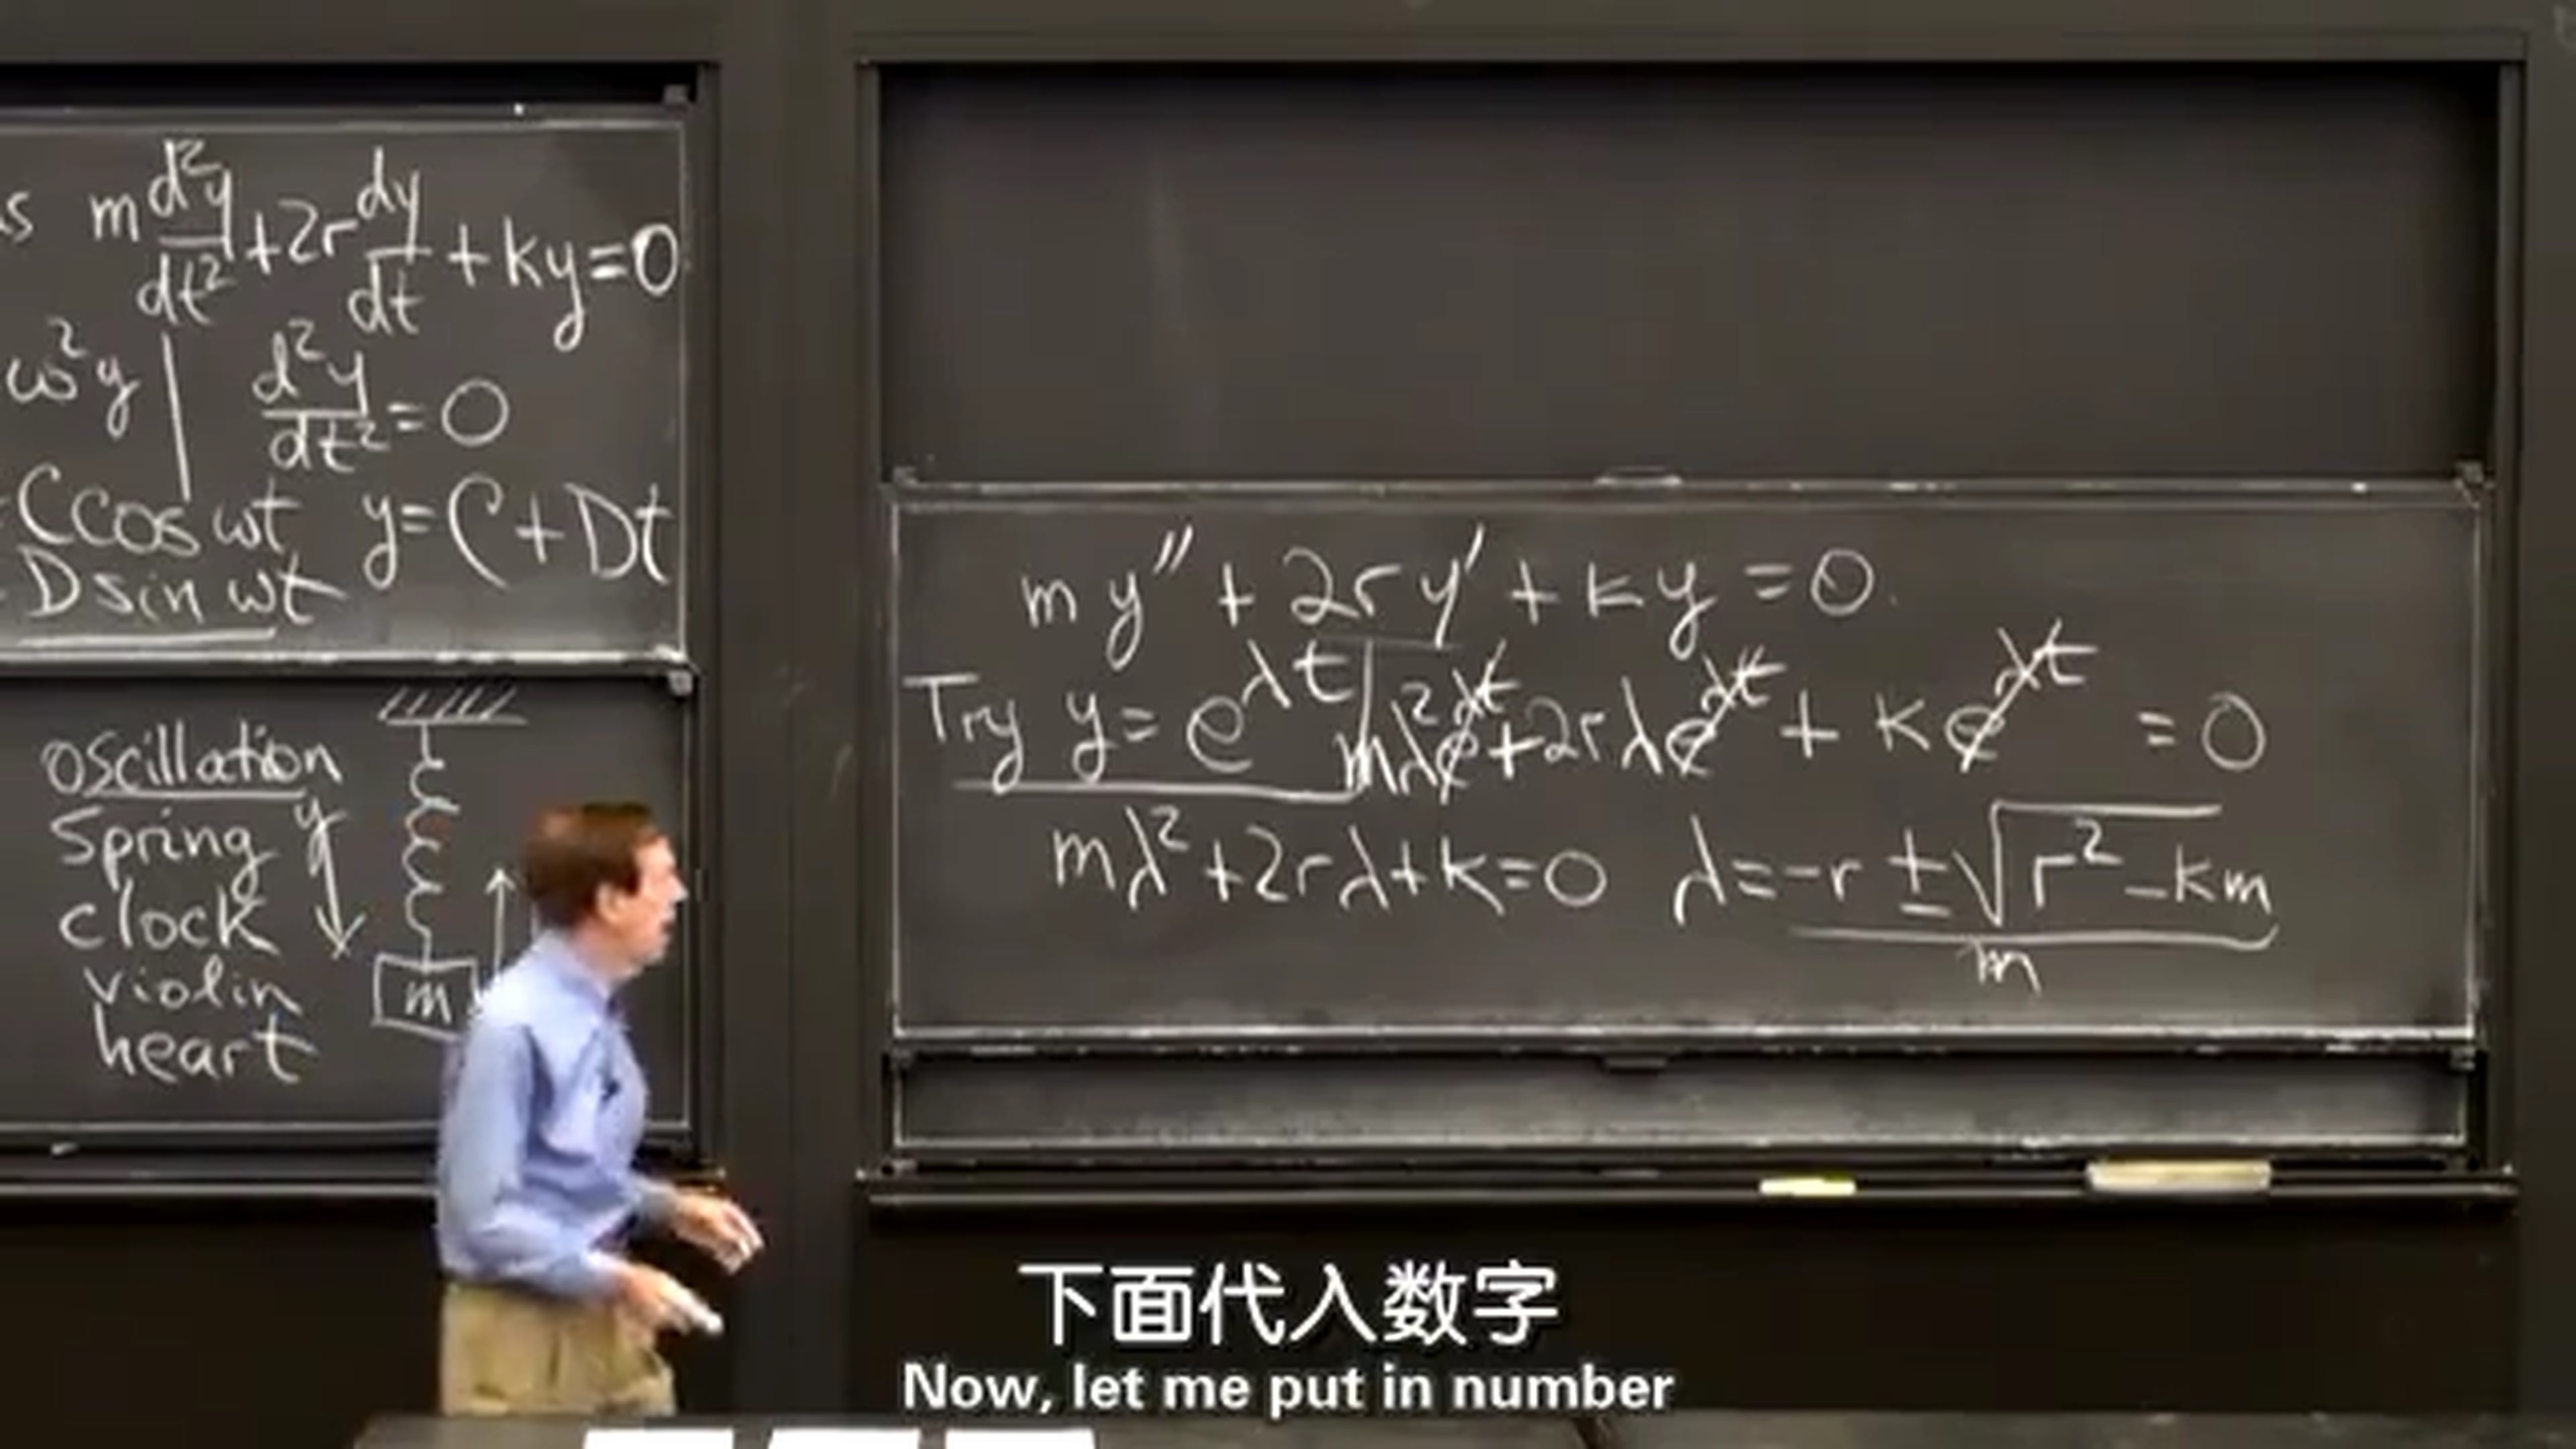 m d²y/dt² + 2r dy/dt + ky = 0
ω²y | d²y/dt² = 0
C cos ωt y = C + Dt
D sin ωt
Oscillation
Spring y
clock
violin m
heart
my″ + 2ry′ + ky = 0
Try y = e^λt | mλ²e^λt + 2rλe^λt + ke^λt = 0
mλ² + 2rλ + k = 0 λ = (-r ± √(r² - km))/m
下面代入数字
Now, let me put in number